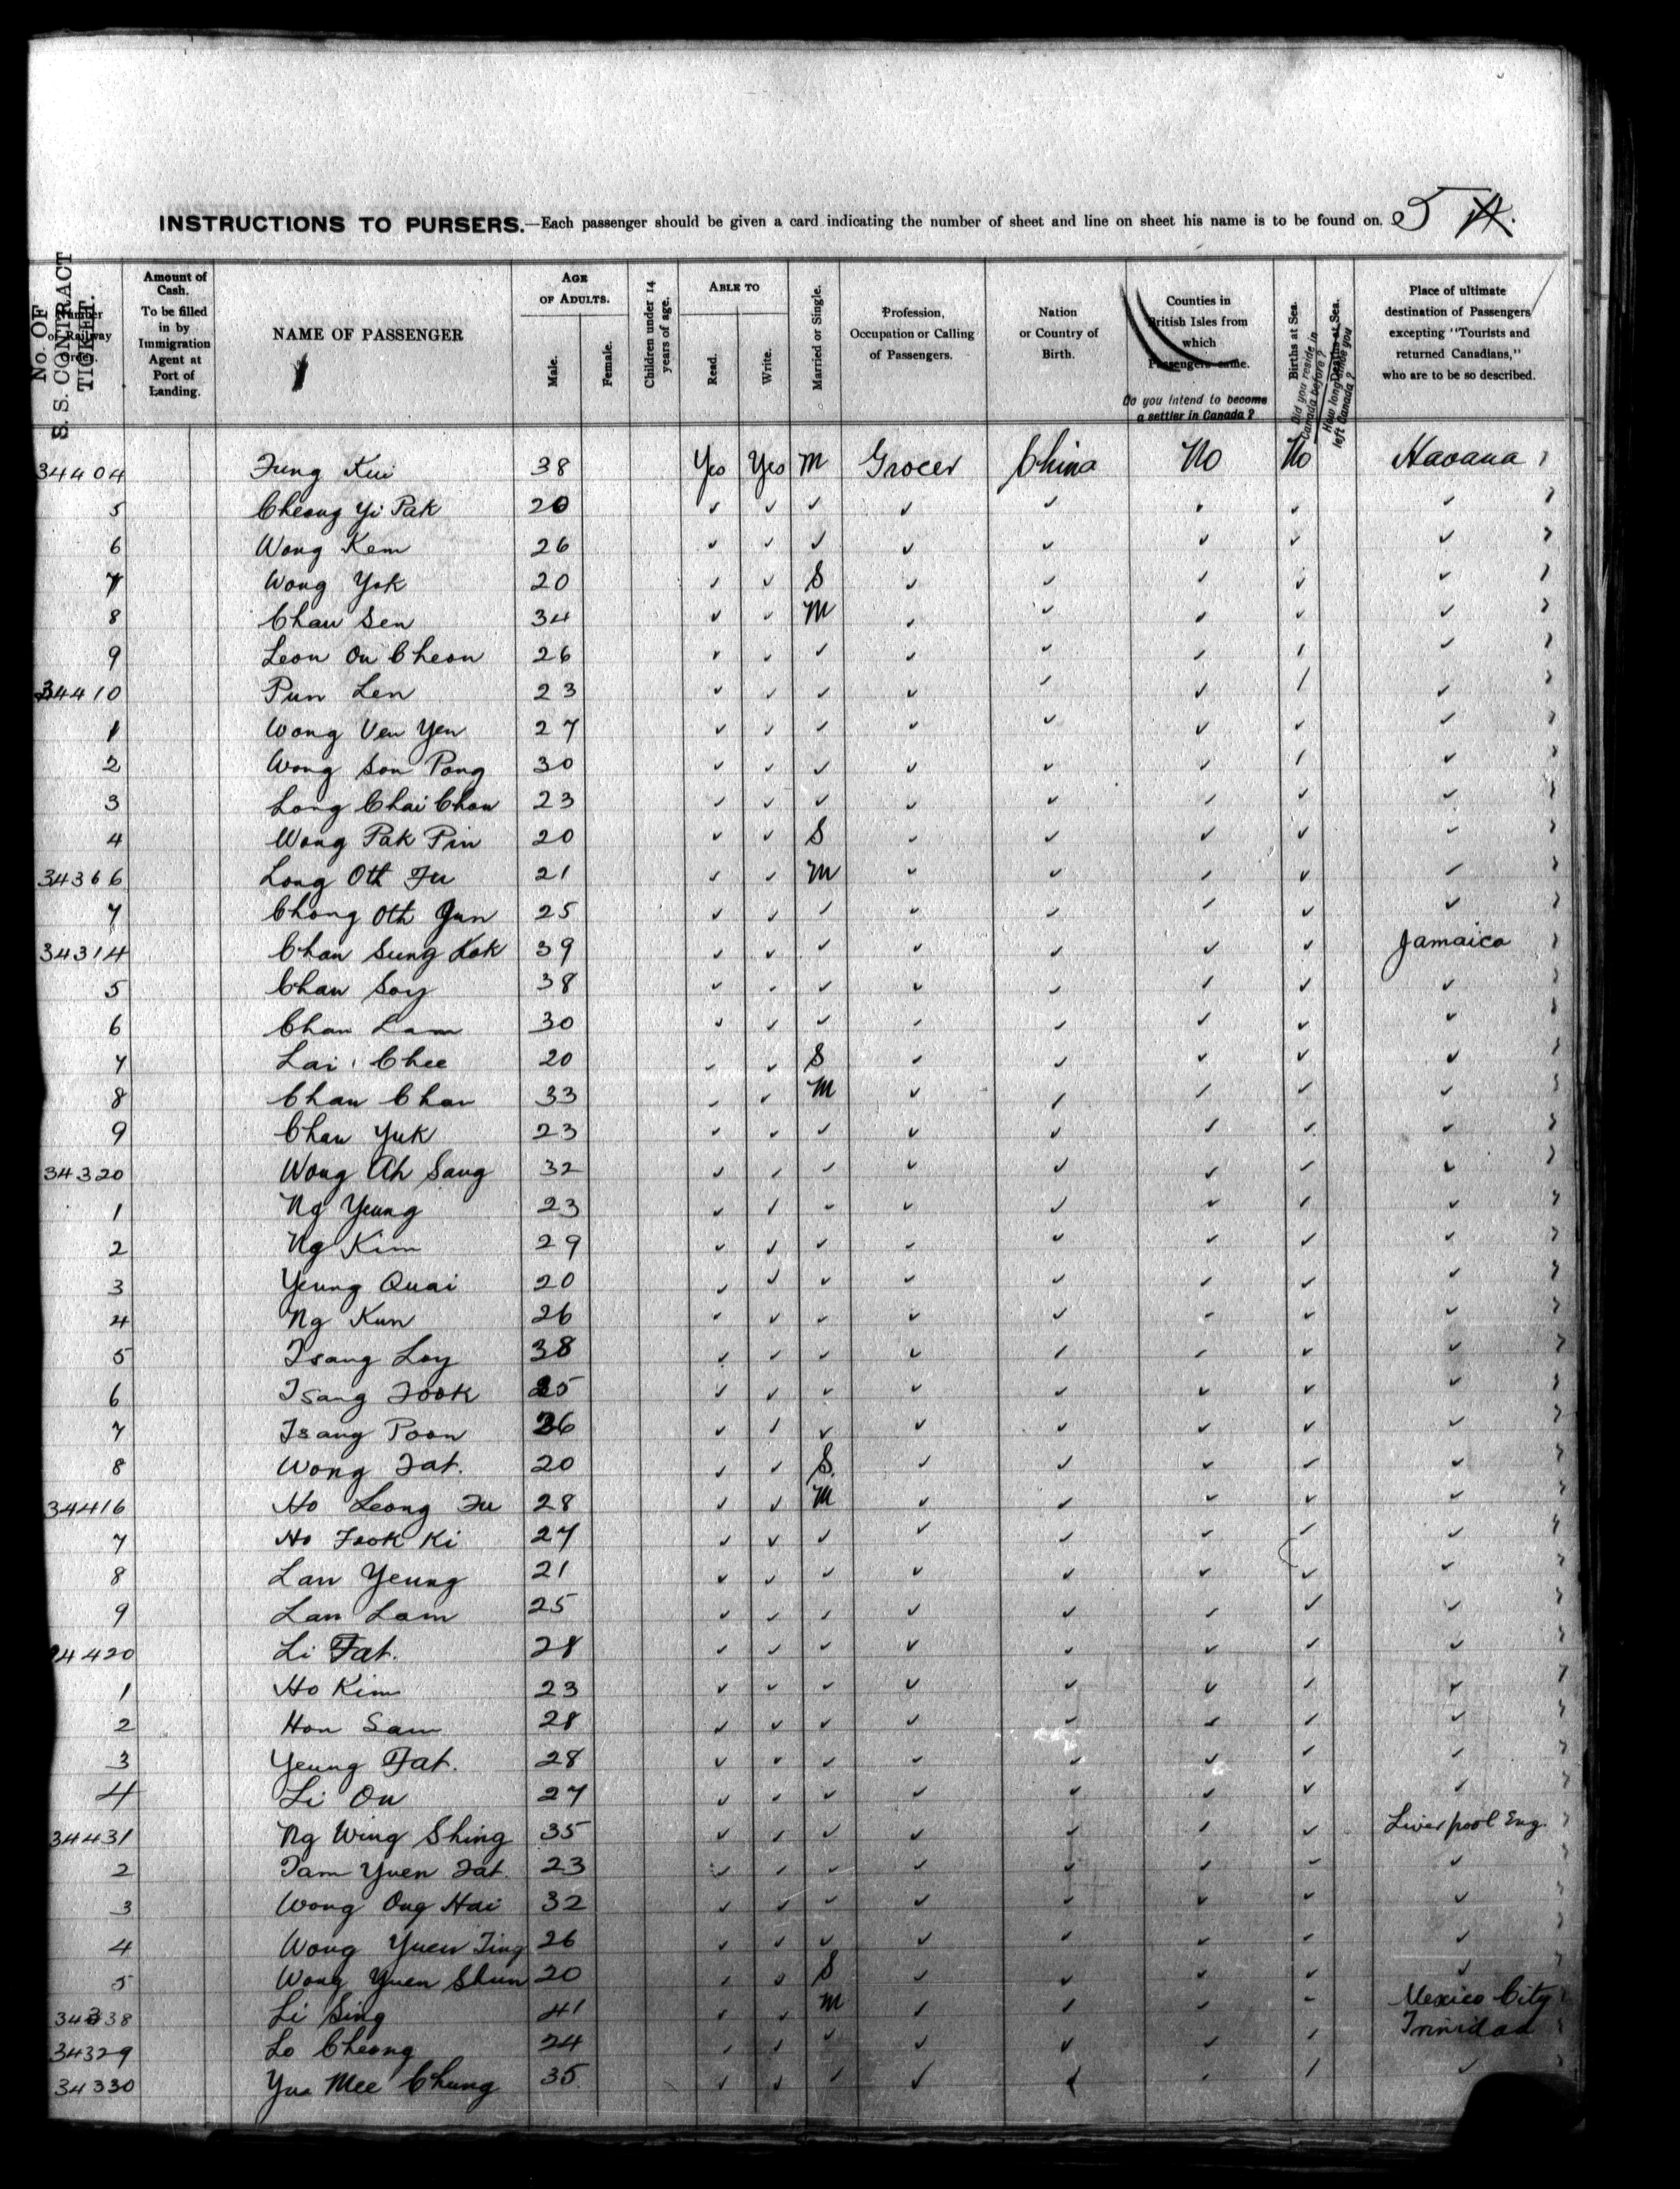 INSTRUCTIONS TO PURSERS.—Each passenger should be given a card indicating the number of sheet and line on sheet his name is to be found on. 5
No. OF S. S. CONTRACT TICKET.
Number of Railway Order.
Amount of Cash. To be filled in by Immigration Agent at Port of Landing.
NAME OF PASSENGER
AGE OF ADULTS. Male. Female.
Children under 14 years of age.
ABLE TO Read. Write.
Married or Single.
Profession, Occupation or Calling of Passengers.
Nation or Country of Birth.
Counties in British Isles from which Passengers came.
Do you intend to become a settler in Canada?
Births at Sea.
Did you reside in Canada before?
Deaths at Sea.
How long since you left Canada?
Place of ultimate destination of Passengers excepting "Tourists and returned Canadians," who are to be so described.
34404 Fung Kui 38 Yes Yes M Grocer China No No Havana
5 Cheong Yi Pak 20 ✓ ✓ ✓ ✓ ✓ ✓ ✓ ✓
6 Wong Kem 26 ✓ ✓ ✓ ✓ ✓ ✓ ✓ ✓
7 Wong Yok 20 ✓ ✓ S ✓ ✓ ✓ ✓ ✓
8 Chau Sen 34 ✓ ✓ M ✓ ✓ ✓ ✓ ✓
9 Leon On Cheon 26 ✓ ✓ ✓ ✓ ✓ ✓ ✓ ✓
34410 Pun Len 23 ✓ ✓ ✓ ✓ ✓ ✓ ✓ ✓
1 Wong Ven Yen 27 ✓ ✓ ✓ ✓ ✓ ✓ ✓ ✓
2 Wong Son Pong 30 ✓ ✓ ✓ ✓ ✓ ✓ ✓ ✓
3 Long Chai Chou 23 ✓ ✓ ✓ ✓ ✓ ✓ ✓ ✓
4 Wong Pak Pin 20 ✓ ✓ S ✓ ✓ ✓ ✓ ✓
34366 Long Oth Fu 21 ✓ ✓ M ✓ ✓ ✓ ✓ ✓
7 Chong Oth Gun 25 ✓ ✓ ✓ ✓ ✓ ✓ ✓ ✓
34314 Chan Sung Kok 39 ✓ ✓ ✓ ✓ ✓ ✓ ✓ Jamaica
5 Chan Soy 38 ✓ ✓ ✓ ✓ ✓ ✓ ✓ ✓
6 Chan Lam 30 ✓ ✓ ✓ ✓ ✓ ✓ ✓ ✓
7 Lai Chee 20 ✓ ✓ S ✓ ✓ ✓ ✓ ✓
8 Chan Chan 33 ✓ ✓ M ✓ ✓ ✓ ✓ ✓
9 Chan Yuk 23 ✓ ✓ ✓ ✓ ✓ ✓ ✓ ✓
34320 Wong Ah Sang 32 ✓ ✓ ✓ ✓ ✓ ✓ ✓ ✓
1 Ng Yeung 23 ✓ ✓ ✓ ✓ ✓ ✓ ✓ ✓
2 Ng Kim 29 ✓ ✓ ✓ ✓ ✓ ✓ ✓ ✓
3 Yeung Quai 20 ✓ ✓ ✓ ✓ ✓ ✓ ✓ ✓
4 Ng Kun 26 ✓ ✓ ✓ ✓ ✓ ✓ ✓ ✓
5 Tsang Loy 38 ✓ ✓ ✓ ✓ ✓ ✓ ✓ ✓
6 Tsang Fook ✓ ✓ ✓ ✓ ✓ ✓ ✓ ✓
7 Tsang Poon 26 ✓ ✓ ✓ ✓ ✓ ✓ ✓ ✓
8 Wong Fat. 20 ✓ ✓ S. ✓ ✓ ✓ ✓ ✓
34416 Ho Leong Fu 28 ✓ ✓ M ✓ ✓ ✓ ✓ ✓
7 Ho Fook Ki 27 ✓ ✓ ✓ ✓ ✓ ✓ ✓ ✓
8 Lan Yeung 21 ✓ ✓ ✓ ✓ ✓ ✓ ✓ ✓
9 Lan Lam 25 ✓ ✓ ✓ ✓ ✓ ✓ ✓ ✓
34420 Li Fat. 28 ✓ ✓ ✓ ✓ ✓ ✓ ✓ ✓
1 Ho Kim 23 ✓ ✓ ✓ ✓ ✓ ✓ ✓ ✓
2 Hon Sam 28 ✓ ✓ ✓ ✓ ✓ ✓ ✓ ✓
3 Yeung Fat. 28 ✓ ✓ ✓ ✓ ✓ ✓ ✓ ✓
4 Li On 27 ✓ ✓ ✓ ✓ ✓ ✓ ✓ ✓
34431 Ng Wing Shing 35 ✓ ✓ ✓ ✓ ✓ ✓ ✓ Liverpool Eng.
2 Tam Yuen Fat. 23 ✓ ✓ ✓ ✓ ✓ ✓ ✓ ✓
3 Wong Ong Hai 32 ✓ ✓ ✓ ✓ ✓ ✓ ✓ ✓
4 Wong Yuen Ting 26 ✓ ✓ ✓ ✓ ✓ ✓ ✓ ✓
5 Wong Yuen Shun 20 ✓ ✓ S ✓ ✓ ✓ ✓ ✓
34338 Li Sing 41 ✓ ✓ M ✓ ✓ ✓ ✓ Mexico City
34329 Lo Cheong 24 ✓ ✓ ✓ ✓ ✓ ✓ ✓ Trinidad
34330 Yua Mee Chung 35 ✓ ✓ ✓ ✓ ✓ ✓ ✓ ✓